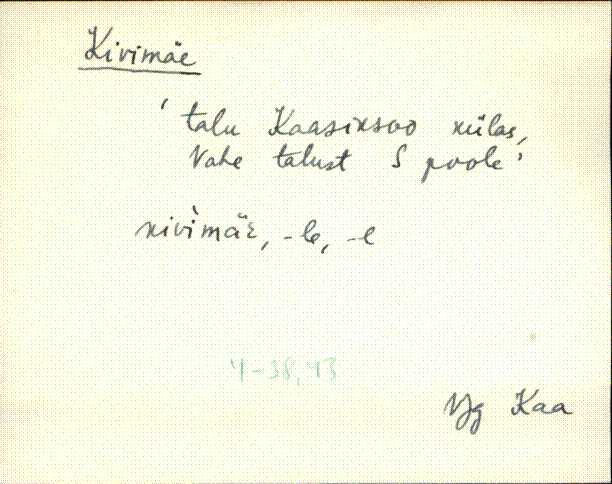 Kivimäe
' talu Kaasiksoo külas,
Vahe talust S poole '
kivìmäe, -le, -l
4-38,43
Vg Kaa